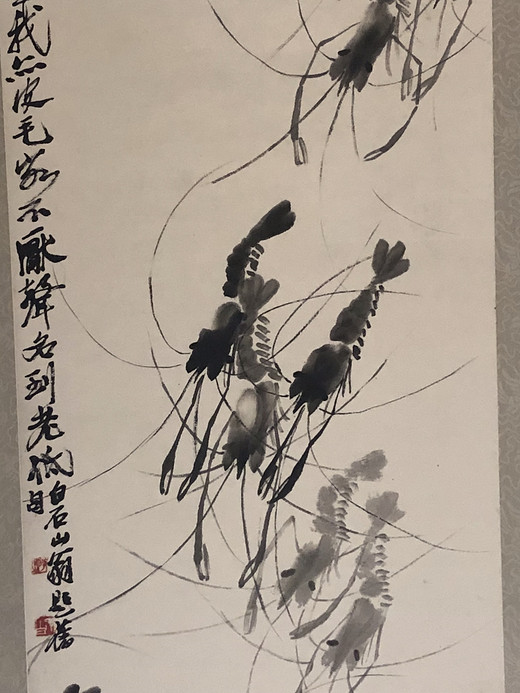 我亦皮毛不厭聲名到老低
白石山翁題舊
句